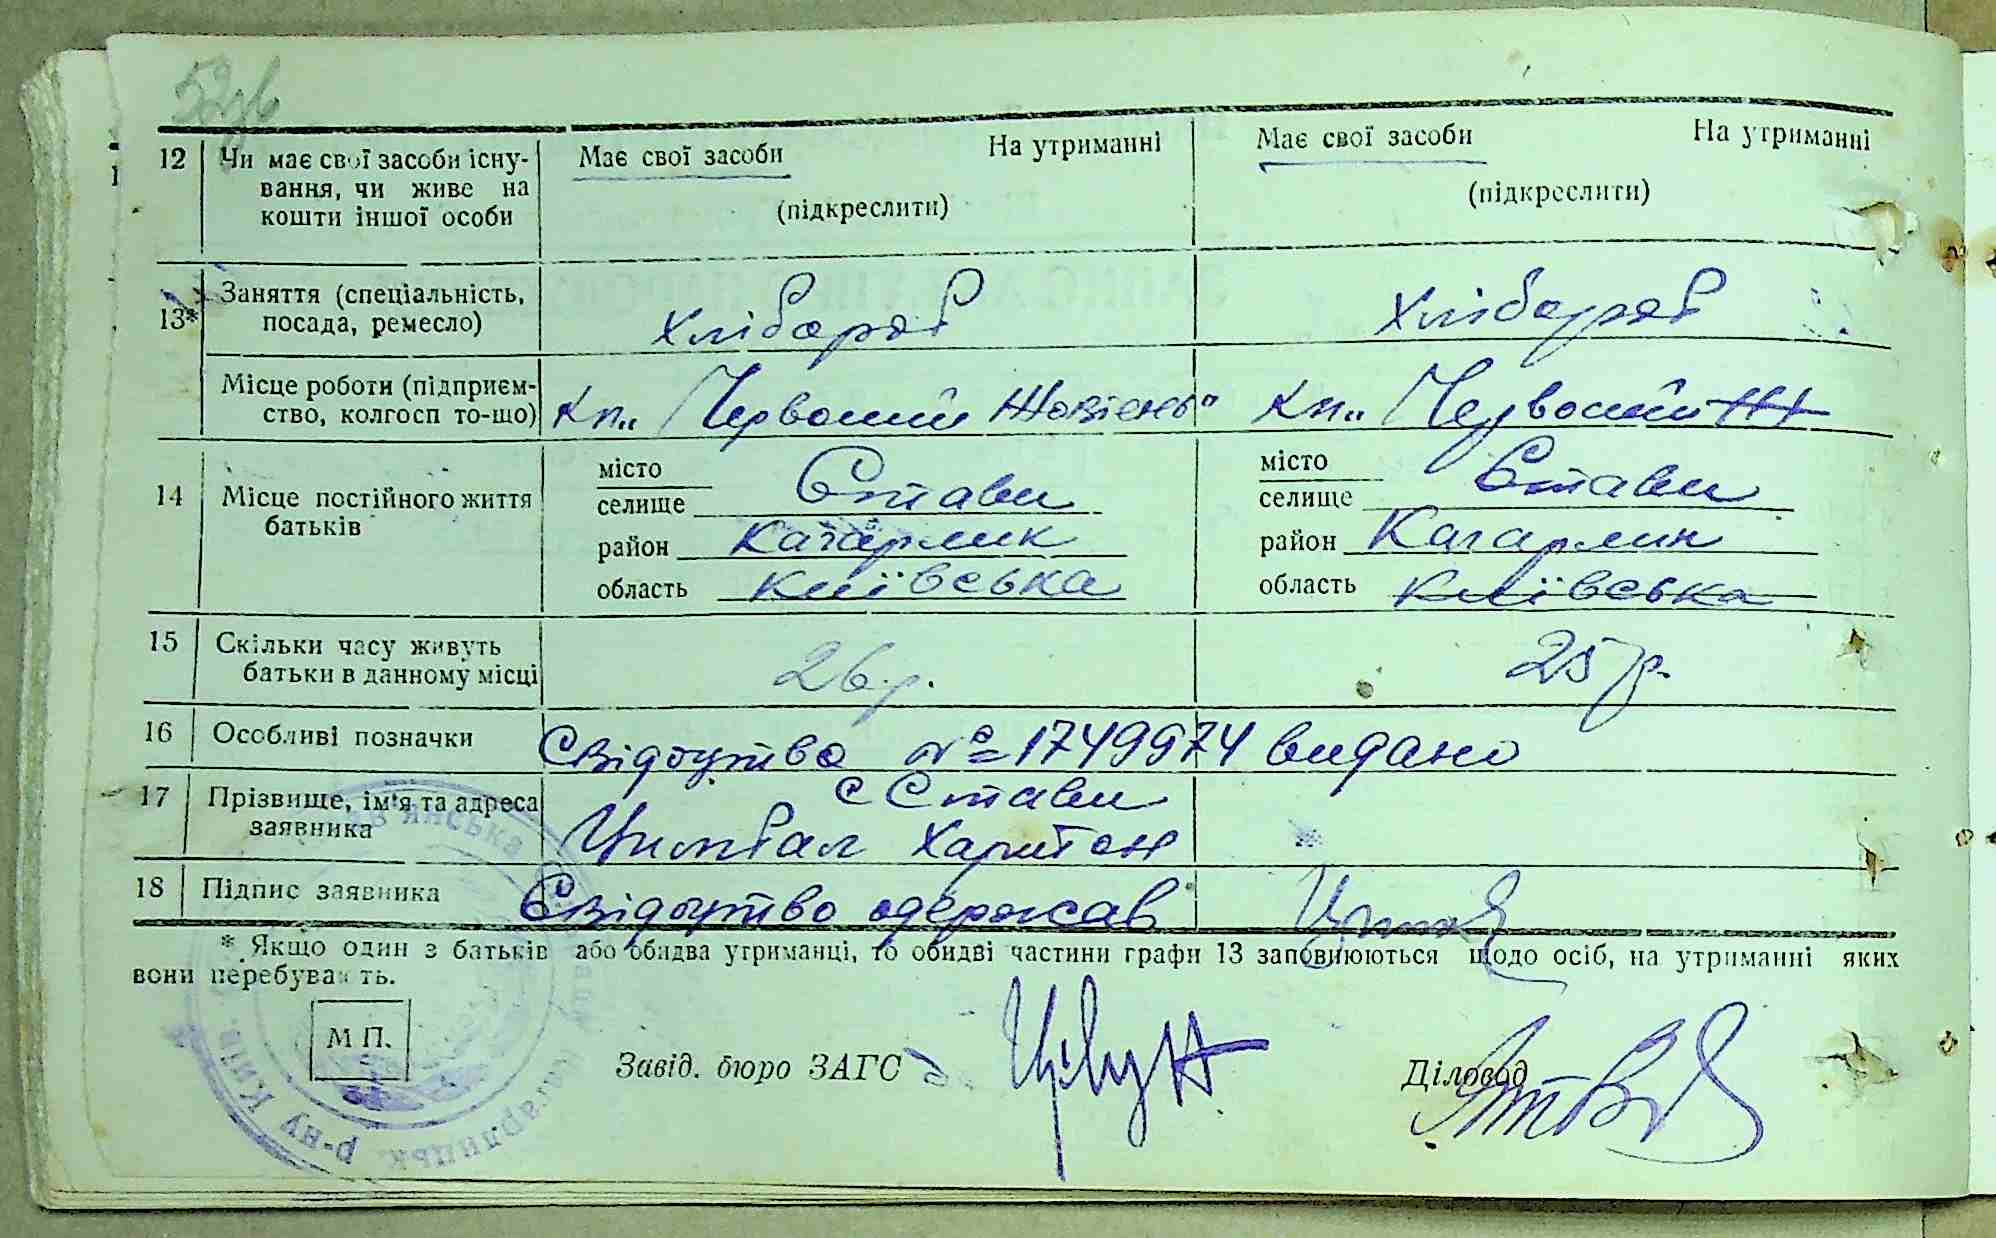 52зв
12 Чи має свої засоби існу- Має свої засоби На утриманні Має свої засоби На утриманні
вання, чи живе на
кошти іншої особи (підкреслити) (підкреслити)
13* Заняття (спеціальність, Хлібороб Хлібороб
посада, ремесло)
Місце роботи (підприєм- Кп „Червоний Жовтень" Кп „Червоний Ж
ство, колгосп то-що)
14 Місце постійного життя місто місто
батьків селище Стави селище Стави
район Кагарлик район Кагарлик
область Київська область Київська
15 Скільки часу живуть 26 р. 25 р.
батьки в данному місці
16 Особливі позначки Свідоцтво № 1749974 видано
17 Прізвище, ім'я та адреса с Стави
заявника Цимбал Харитон
18 Підпис заявника Свідоцтво одержав
* Якщо один з батьків або обидва утриманці, то обидві частини графи 13 заповнюються щодо осіб, на утриманні яких
вони перебувають.
М П.
Завід. бюро ЗАГС Діловод
Кагарлицьк р-ну Київ.